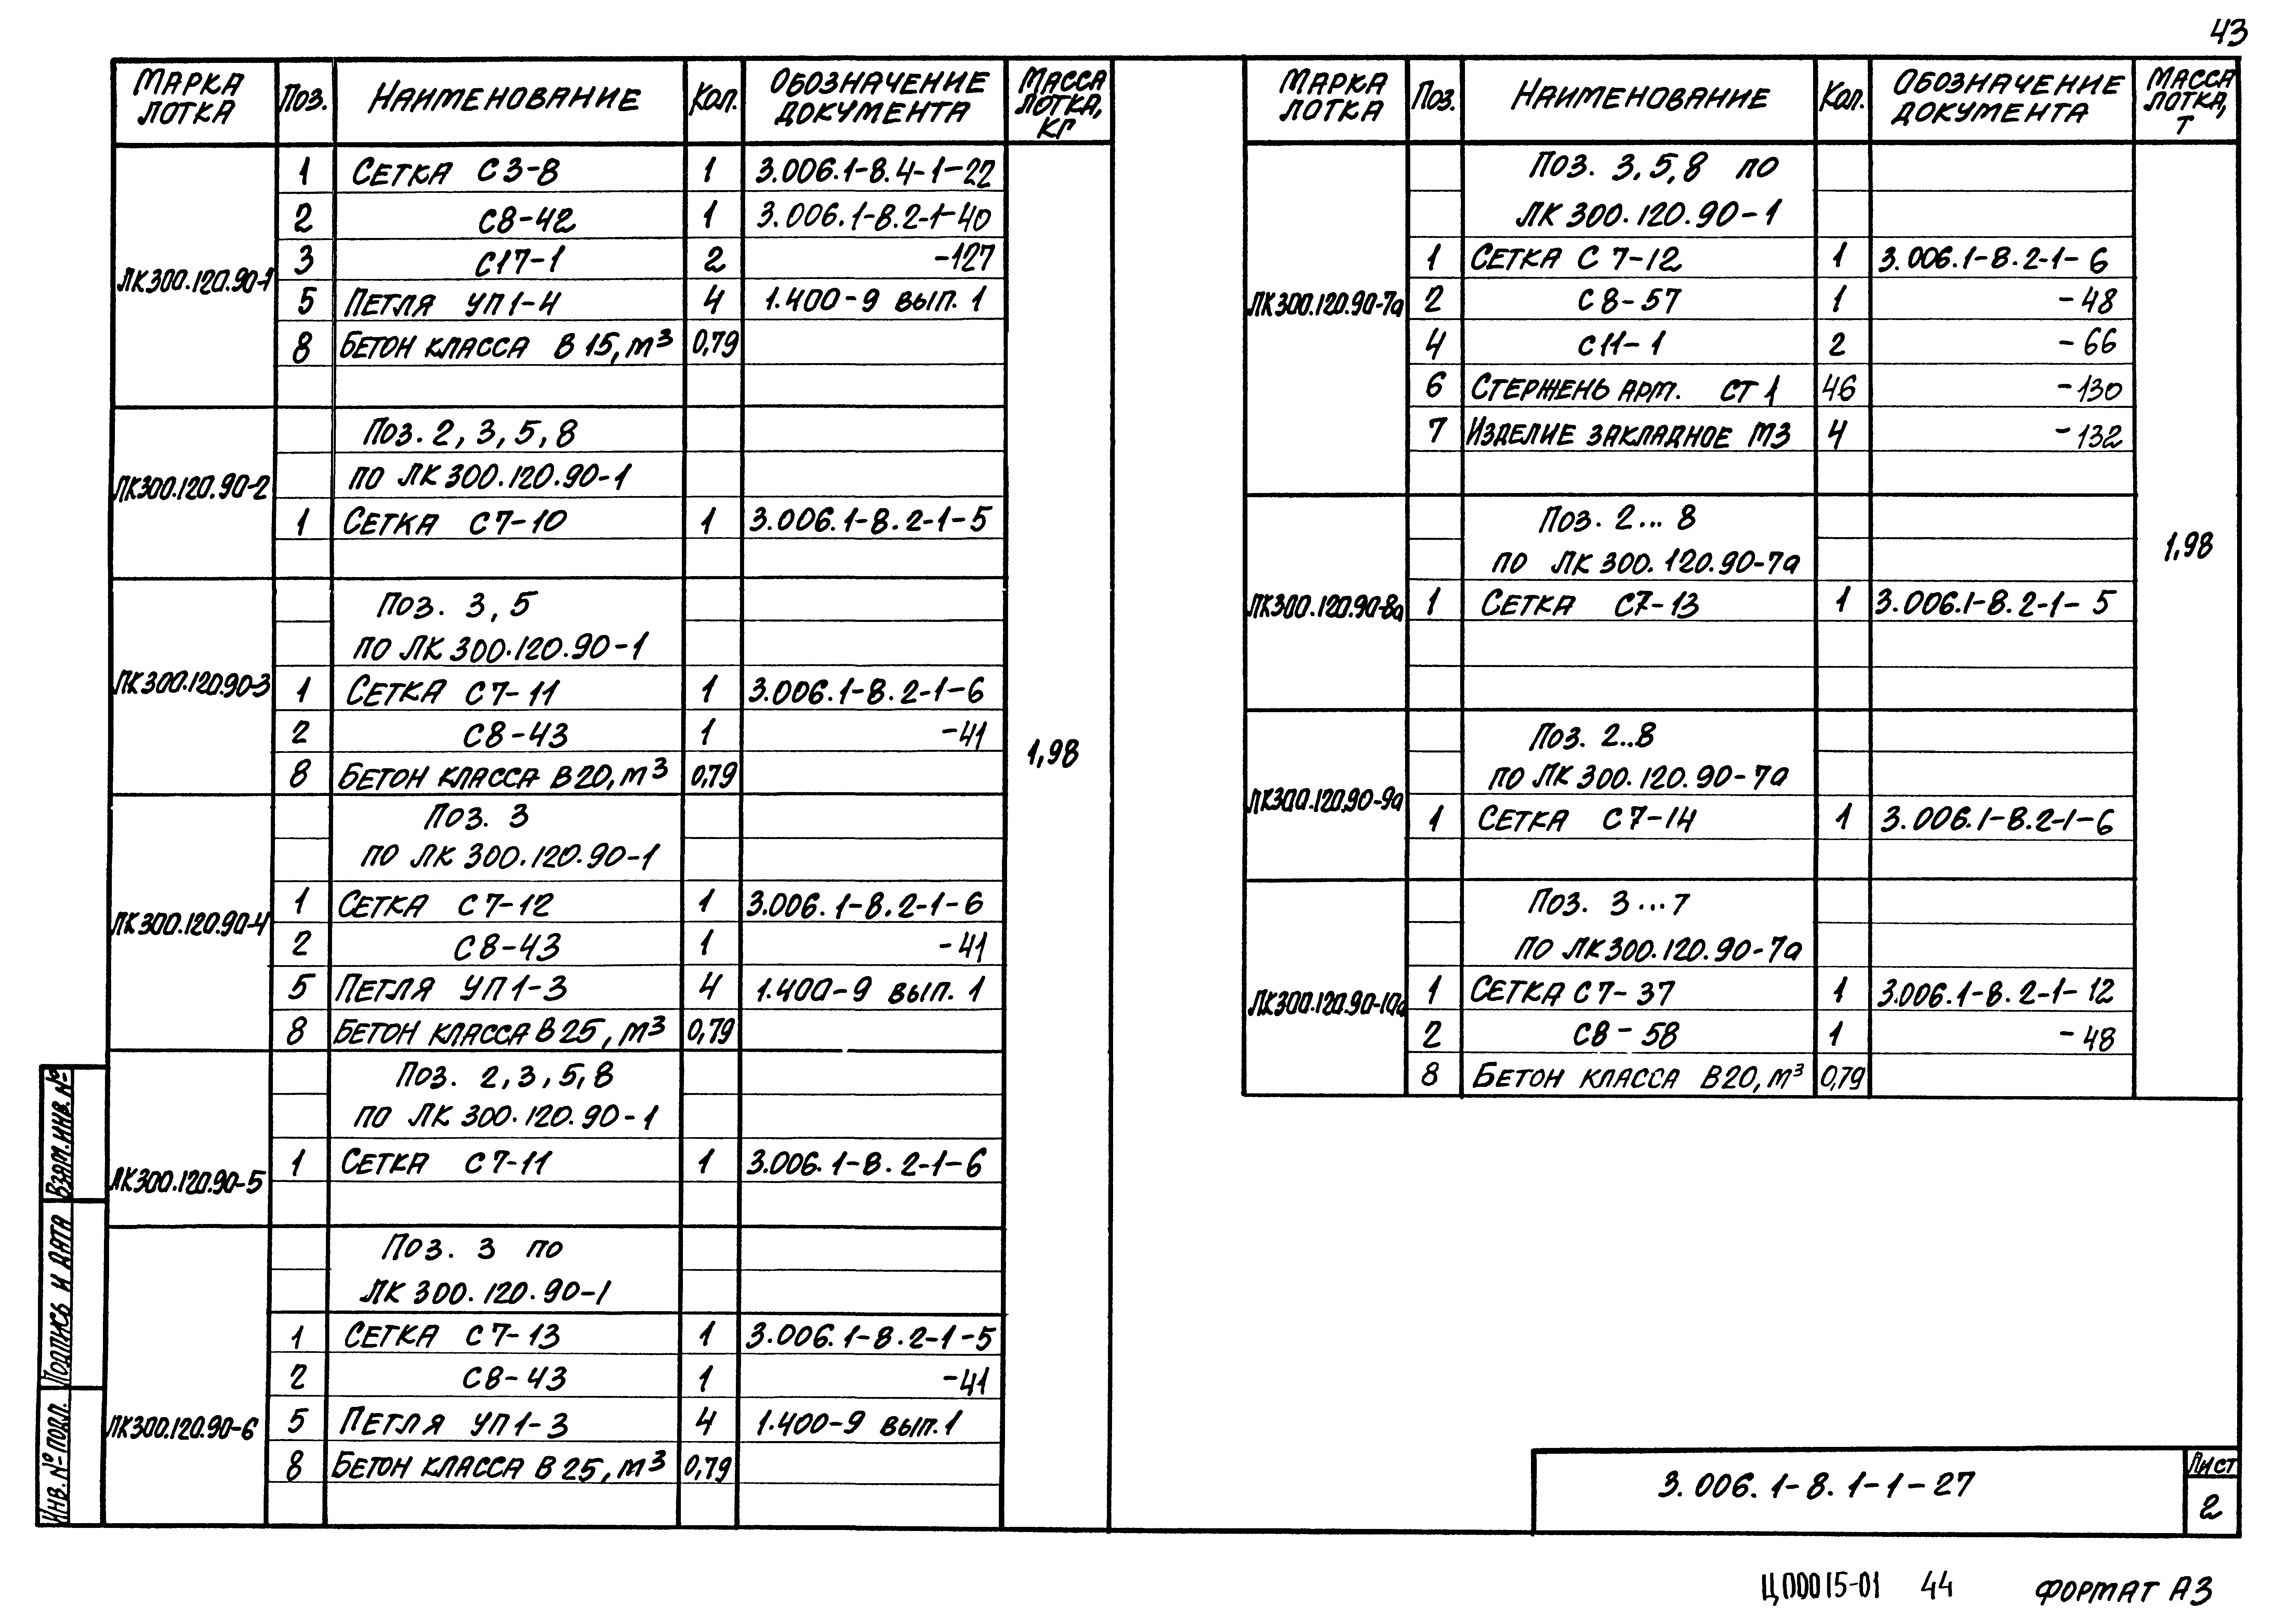 43
МАРКА ЛОТКА Поз. НАИМЕНОВАНИЕ Кол. ОБОЗНАЧЕНИЕ ДОКУМЕНТА МАССА ЛОТКА, КГ
ЛК300.120.90-1
1 СЕТКА С3-8 1 3.006.1-8.4-1-22
2 С8-42 1 3.006.1-8.2-1-40
3 С17-1 2 -127
5 ПЕТЛЯ УП1-4 4 1.400-9 ВЫП. 1
8 БЕТОН КЛАССА В 15, М³ 0,79
ЛК300.120.90-2
Поз. 2, 3, 5, 8
ПО ЛК 300.120.90-1
1 СЕТКА С7-10 1 3.006.1-8.2-1-5
ЛК300.120.90-3
Поз. 3, 5
ПО ЛК 300.120.90-1
1 СЕТКА С7-11 1 3.006.1-8.2-1-6
2 С8-43 1 -41
8 БЕТОН КЛАССА В20, М³ 0,79
1,98
ЛК300.120.90-4
Поз. 3
ПО ЛК 300.120.90-1
1 СЕТКА С7-12 1 3.006.1-8.2-1-6
2 С8-43 1 -41
5 ПЕТЛЯ УП1-3 4 1.400-9 ВЫП. 1
8 БЕТОН КЛАССА В25, М³ 0,79
ЛК300.120.90-5
Поз. 2, 3, 5, 8
ПО ЛК 300.120.90-1
1 СЕТКА С7-11 1 3.006.1-8.2-1-6
ЛК300.120.90-6
Поз. 3 по
ЛК 300.120.90-1
1 СЕТКА С7-13 1 3.006.1-8.2-1-5
2 С8-43 1 -41
5 ПЕТЛЯ УП1-3 4 1.400-9 ВЫП.1
8 БЕТОН КЛАССА В25, М³ 0,79
МАРКА ЛОТКА Поз. НАИМЕНОВАНИЕ Кол. ОБОЗНАЧЕНИЕ ДОКУМЕНТА МАССА ЛОТКА, Т
ЛК300.120.90-7а
Поз. 3, 5, 8 по
ЛК 300.120.90-1
1 СЕТКА С 7-12 1 3.006.1-8.2-1-6
2 С8-57 1 -48
4 С11-1 2 -66
6 СТЕРЖЕНЬ АРМ. СТ 1 46 -130
7 ИЗДЕЛИЕ ЗАКЛАДНОЕ М3 4 -132
ЛК300.120.90-8а
Поз. 2... 8
по ЛК 300.120.90-7а
1 СЕТКА С7-13 1 3.006.1-8.2-1-5
1,98
ЛК300.120.90-9а
Поз. 2..8
ПО ЛК 300.120.90-7а
1 СЕТКА С7-14 1 3.006.1-8.2-1-6
ЛК300.120.90-10а
Поз. 3...7
ПО ЛК300.120.90-7а
1 СЕТКА С7-37 1 3.006.1-8.2-1-12
2 С8-58 1 -48
8 БЕТОН КЛАССА В20, М³ 0,79
ВЗАМ.ИНВ.№
ПОДПИСЬ И ДАТА
ИНВ.№ ПОДЛ.
3.006.1-8.1-1-27
ЛИСТ
2
ЦП00015-01 44 ФОРМАТ А3